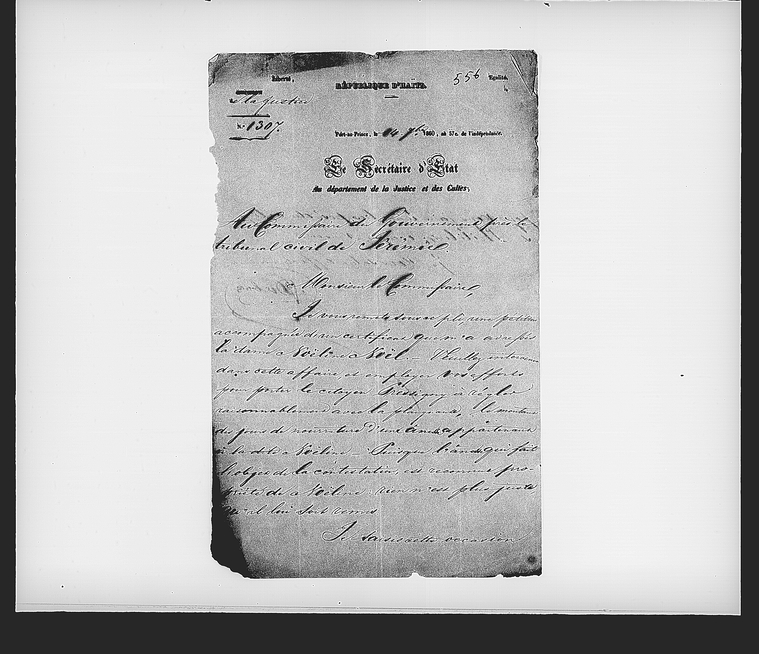 Liberté, 556 Egalité.
RÉPUBLIQUE D'HAÏTI.
la Justice
N° 1307.
Port-au-Prince, le 24 7bre 1860, an 57e. de l'indépendance.
Le Secrétaire d'Etat
Au département de la Justice et des Cultes,
Au Commissaire du Gouvernement près le
tribunal civil de Jérémie
Monsieur le Commissaire,
Je vous remets sous ce pli, une pétition
accompagnée d'un certificat que m'a adressée
la dame Noël. Veuillez intervenir
dans cette affaire et employer vos efforts
pour porter le citoyen à régler
raisonnablement avec la plaignante, le montant
des frais de nourriture d'une ânesse appartenant
à la dite. Puisque l'ânesse qui fait
l'objet de la contestation est reconnue pro-
priété de rien n'est plus juste
qu'elle lui soit remise
Je saisis cette occasion